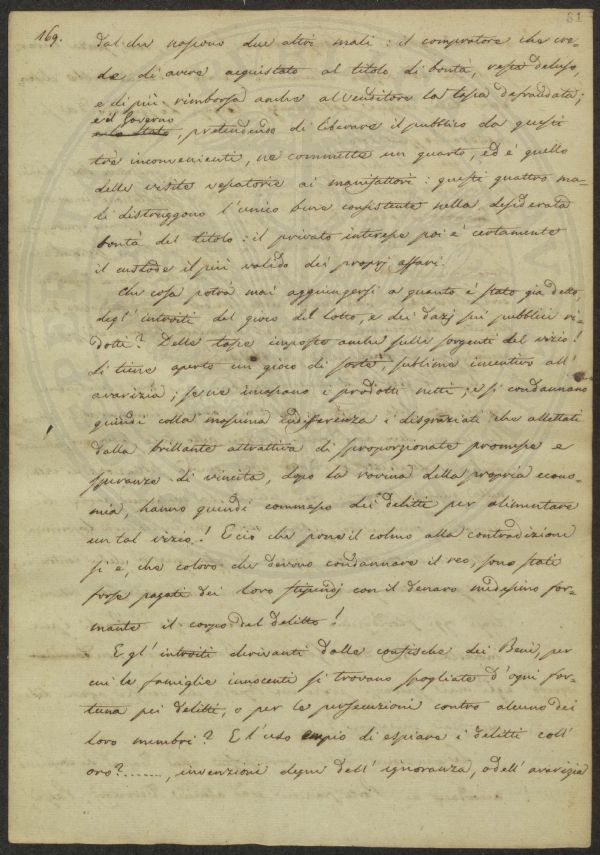 169.
81
dal che nascono due altri mali: il compratore che cre-
de, di avere acquistato al titolo di bontà, resta deluso,
e di più rimborsa anche al venditore la tassa defraudata;
e il Governo
e lo Stato, pretendendo di liberare il pubblico da questi
trè inconvenienti, ne committe un quarto, ed è quello
delle visite vessatorie ai manifattori: questi quattro ma-
li distruggono l'unico bene consistente nella desiderata
bontà del titolo: il privato interesse poi è certamente
il custode il più valido dei proprj affari.
Che cosa potrà mai aggiungersi a quanto è stato già detto
degl'introiti del gioco del Lotto, e dei dazj sui pubblici ri-
dotti? Delle tasse imposte anche sulle sorgenti del vizio!
Si tiene aperto un gioco di sorte, sublime incentivo all'
avarizia; se ne incassano i prodotti netti; e si condannano
quindi colla massima indifferenza i disgraziati che allettati
dalla brillante attrattiva di sproporzionate promesse e
speranze di vincita, dopo la rovina della propria econo-
mia, hanno quindi commesso dei delitti per alimentare
un tal vizio! E ciò che pone il colmo alla contradizione
si è, che coloro che devono condannare il reo, sono stati
forse pagati dei loro stipendj con il denaro medesimo for-
mante il corpo del delitto!
E gl'introiti derivanti dalle confische dei Beni, per
cui le famiglie innocenti si trovano spogliate d'ogni for-
tuna pei delitti, o per le persecuzioni contro alcuno dei
loro membri? E l'uso empio di espiare i delitti coll'
oro?......., invenzioni degne dell'ignoranza, o dell'avarizia